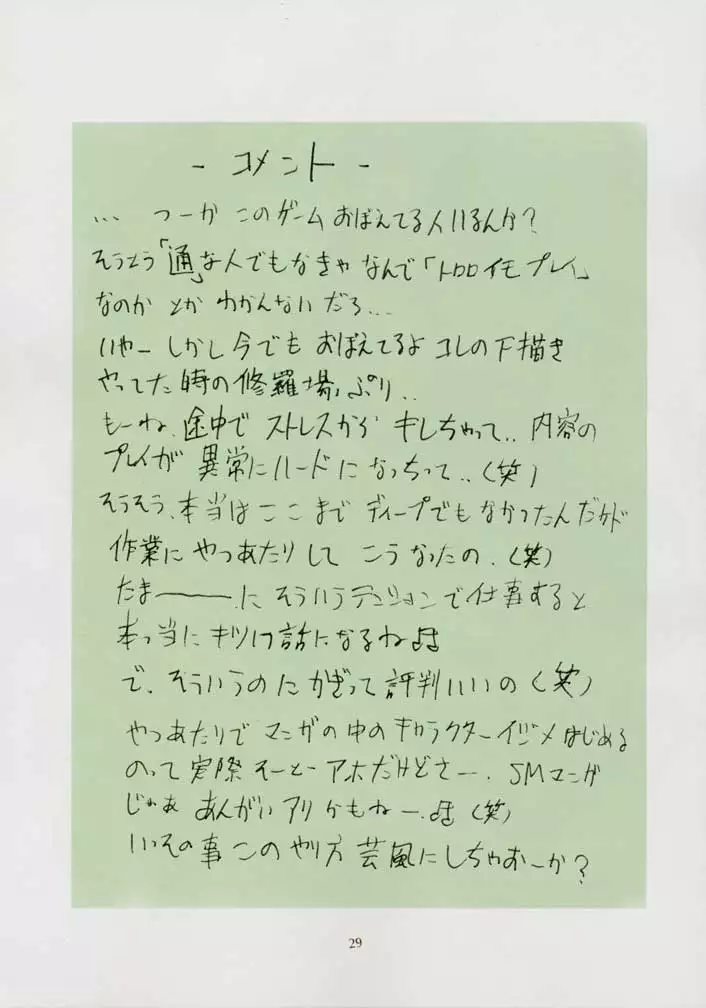 - コメント -
… つーか このゲーム おぼえてる人 いるんか?
そうとう「通」な人でもなきゃ なんで「トロロイモプレイ」
なのか とか わかんないだろ…
いやー しかし 今でも おぼえてるよ コレの下描き
やってた時の修羅場っぷり..
もーね、途中で ストレスから キレちゃって.. 内容の
プレイが 異常にハードに なっちって..(笑)
そうそう、本当は ここまで ディープでもなかったんだけど
作業に やつあたりして こうなったの.(笑)
たまーーーに そういうテンションで 仕事すると
本っ当に キツい話になるね♪
で、そういうのに かぎって 評判いいの(笑)
やつあたりで マンガの中の キャラクターイジメはじめる
のって 実際 そーとー アホだけどさー. SMマンガ
じゃあ あんがい アリ かもねー.♪(笑)
いっその事 このやり方 芸風にしちゃおーか?
29